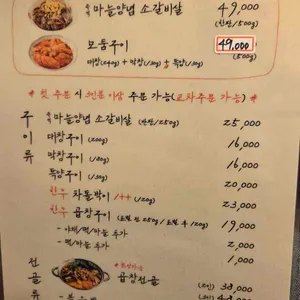 숙성 마늘양념 소갈비살 49,000
(한판/500g)
모듬구이 49,000
대창(240g) + 막창(130g) + 특양(130g) (500g)
* 첫 주문 시 3인분 이상 주문 가능(교차주문 가능) *
구이류
마늘양념 소갈비살 (한판/250g) 25,000
대창구이 (200g) 16,000
막창구이 (180g) 16,000
특양구이 (180g) 20,000
한우 차돌박이 1++ (120g) 23,000
한우 곱창구이 (조리 전 250g / 조리 후 120g) 19,000
- 야채/떡/마늘 추가 2,000
- 떡/마늘 추가 1,000
전골류
곱창전골 (2인) 38,000